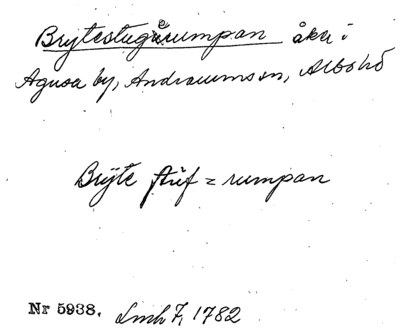 Brytestugerumpan åker i
Agusa by, Andrarums sn, Albo hd
Bryte stuf = rumpan
Nr 5938. Lmh 7, 1782